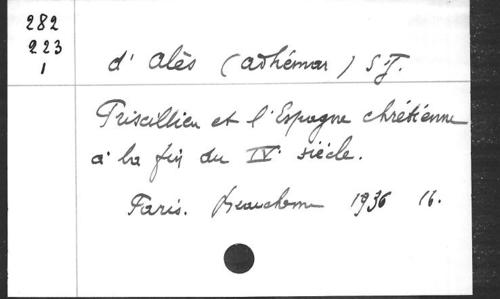 282
223
1
d' Alès (Adhémar) S.J.
Priscillien et l'Espagne chrétienne
à la fin du IVe siècle.
Paris. Beauchesne 1936 16.